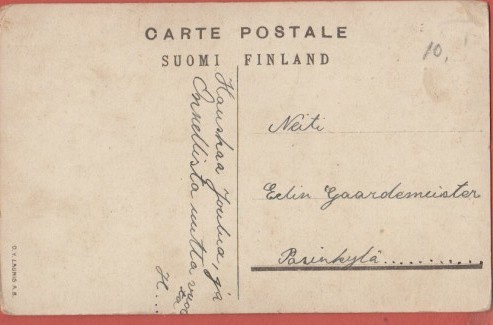 CARTE POSTALE
SUOMI FINLAND
10.
Hauskaa Joulua, ja
Onnellista uutta vuot
ta
H....
Neiti
Edin Gaardemeister
Pasinkylä..........
O.Y. LAUNIS A.B.